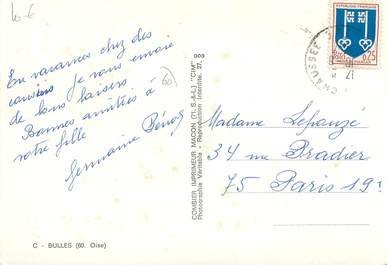 10 €
En vacances chez des
cousins je vous envoie
de bons baisers
Bonnes amitiés à
votre fille
Germaine
60
COMBIER IMPRIMEUR MACON (71. S.-&-L.) "CIM"
Photographie Véritable - Reproduction Interdite.
REPUBLIQUE FRANÇAISE
0,25
CHAUSSEE
17
Madame Lepauzé
34 rue Pradier
75 Paris 19e
C - BULLES (60. Oise)